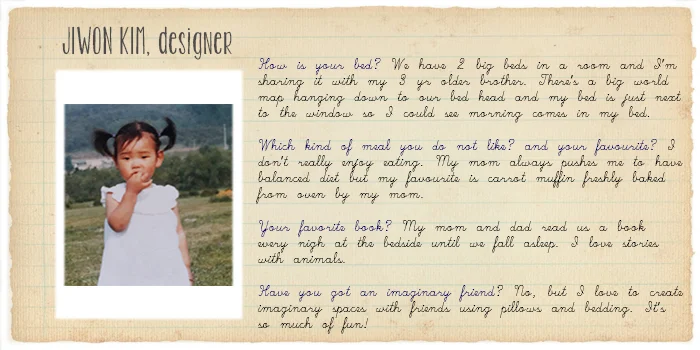 JIWON KIM, designer
How is your bed? We have 2 big beds in a room and I'm
sharing it with my 3 yr older brother. There's a big world
map hanging down to our bed head and my bed is just next
to the window so I could see morning comes in my bed.
Which kind of meal you do not like? and your favourite? I
don't really enjoy eating. My mom always pushes me to have
balanced diet but my favourite is carrot muffin freshly baked
from oven by my mom.
Your favorite book? My mom and dad read us a book
every nigh at the bedside until we fall asleep. I love stories
with animals.
Have you got an imaginary friend? No, but I love to create
imaginary spaces with friends using pillows and bedding. It's
so much of fun!